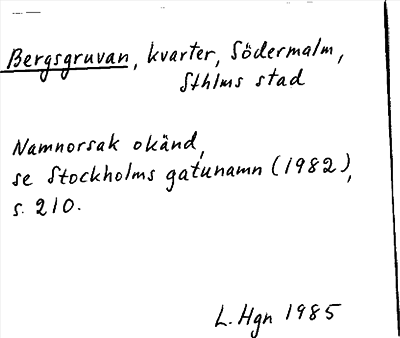 Bergsgruvan, kvarter, Södermalm,
Sthlms stad
Namnorsak okänd,
se Stockholms gatunamn (1982),
s. 210.
L. Hgn 1985